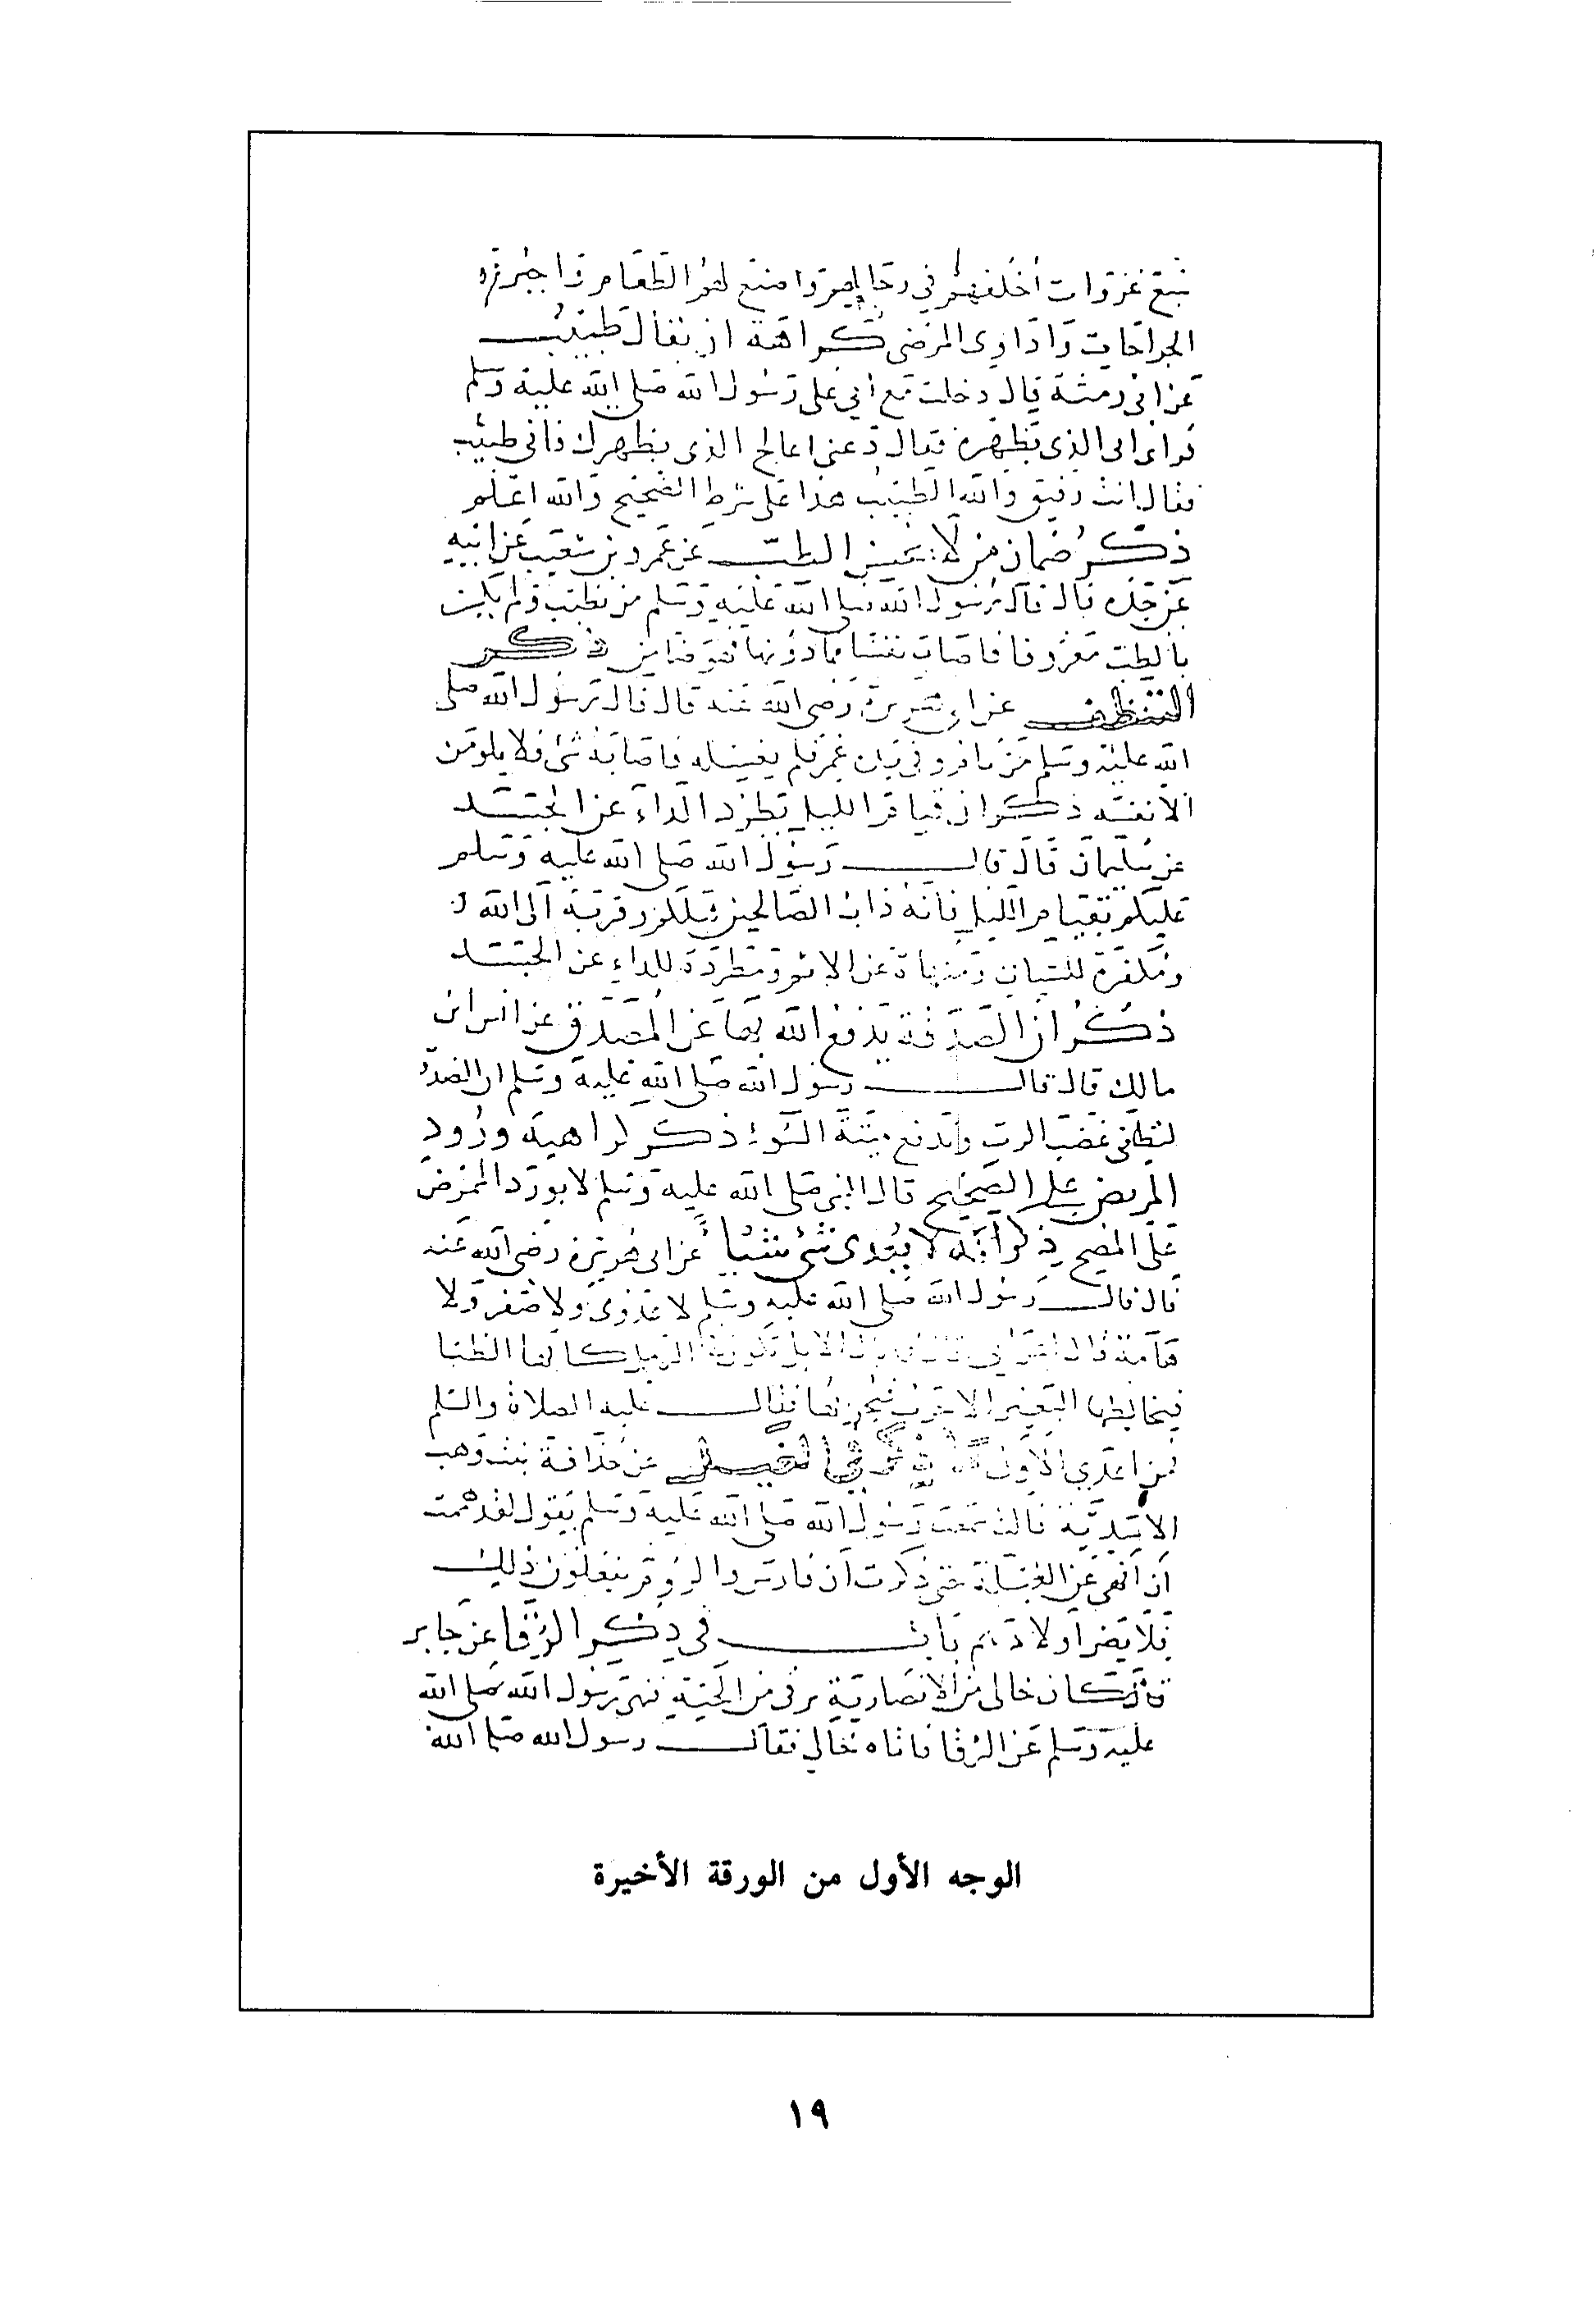 سبع غزوات أخلفهم في رحالهم واصنع لهم الطعام واجبر
الجراحات واداوى المرضى كراهة ان يقال طبيب
عن ابى رمثة قال دخلت مع أبي على رسول الله صلى الله عليه وسلم
فراى ابى الذى بظهره فقال دعنى اعالج الذى بظهرك فانى طبيب
فقال انت رفيق والله الطبيب هذا على شرط الصحيح والله اعلم
ذكر ضمان من لا يحسن الطب عن عمرو بن شعيب عن ابيه
عن جده قال قال رسول الله صلى الله عليه وسلم من تطبب ولم يكن
بالطب معروفا فاصاب نفسا فما دونها فهو ضامن ذكر
التنظف عن ابى هريرة رضى الله عنه قال قال رسول الله صلى
الله عليه وسلم من نام وفى يده غمر فلم يغسله فاصابه شئ فلا يلومن
الا نفسه ذكر ان قيام الليل يطرد الداء عن الجسد
عن سليمان قال قال رسول الله صلى الله عليه وسلم
عليكم بقيام الليل فانه داب الصالحين قبلكم وقربة الى الله
ومكفرة للسيات ومنهاة عن الاثم ومطردة للداء عن الجسد
ذكر ان الصدقة يدفع الله بها عن المتصدق عن انس ابن
مالك قال قال رسول الله صلى الله عليه وسلم ان الصدقة
لتطفى غضب الرب وتدفع ميتة السوء ذكر كراهية ورود
المريض على الصحيح قال النبى صلى الله عليه وسلم لا يورد الممرض
على المصح ذكر أنه لا يعدى شئ شيئا عن ابى هريرة رضى الله عنه
قال قال رسول الله صلى الله عليه وسلم لا عدوى ولا صفر ولا
هامة قال اعرابي الابل تكون فى الرمل كانها الظبا
فيخالطها البعير الاجرب فيجربها فقال عليه الصلاة والسلم
فمن اعدى الاول فى الغيل عن جدامة بنت وهب
الاسدية قالت سمعت رسول الله صلى الله عليه وسلم يقول لقد هممت
ان انهى عن الغيلة حتى ذكرت ان فارس والروم يفعلون ذلك
فلا يضر اولادهم باب في ذكر الرقا عن جابر
قال كان خالى من الانصار يرقى من الحية فنهى رسول الله صلى الله
عليه وسلم عن الرقا فاتاه خالي فقال رسول الله صلى الله
الوجه الأول من الورقة الأخيرة
١٩